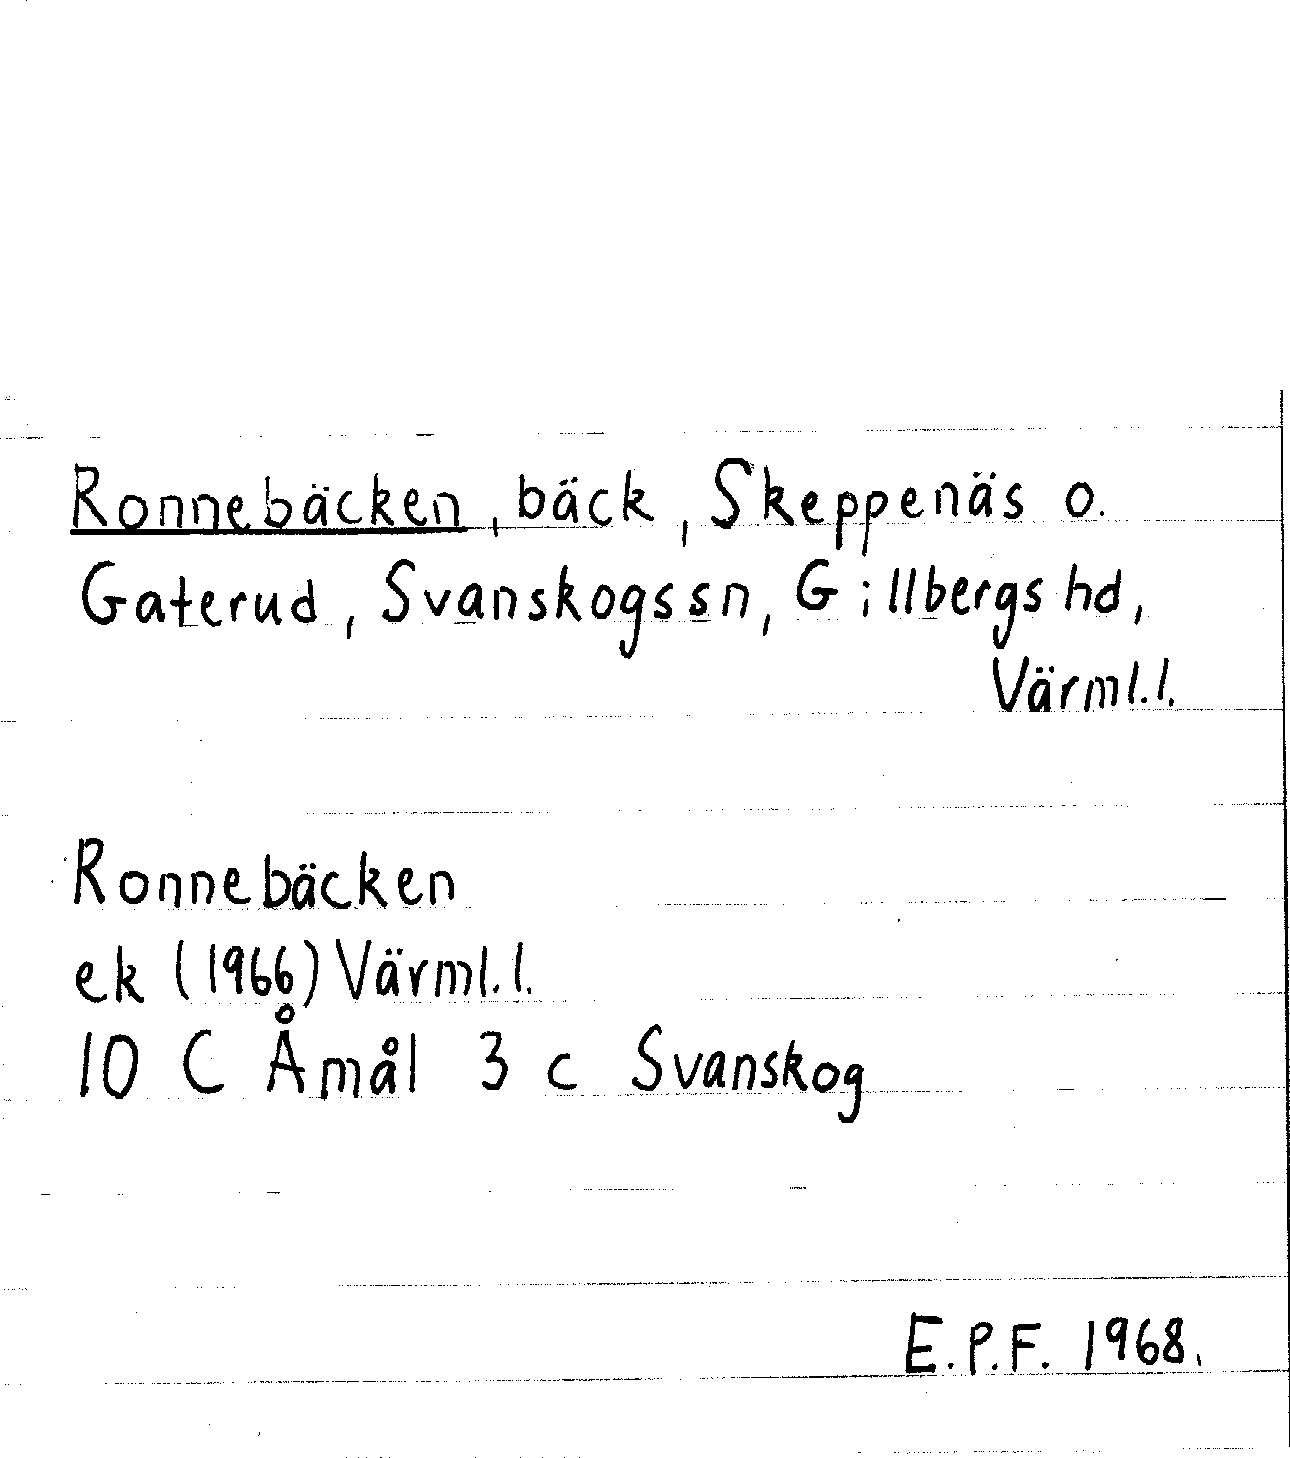 Ronnebäcken, bäck, Skeppenäs o.
Gaterud, Svanskogs sn, Gillbergs hd,
Värml. l.
Ronnebäcken
ek (1966) Värml. l.
10 C Åmål 3 c Svanskog
E.P.F. 1968.